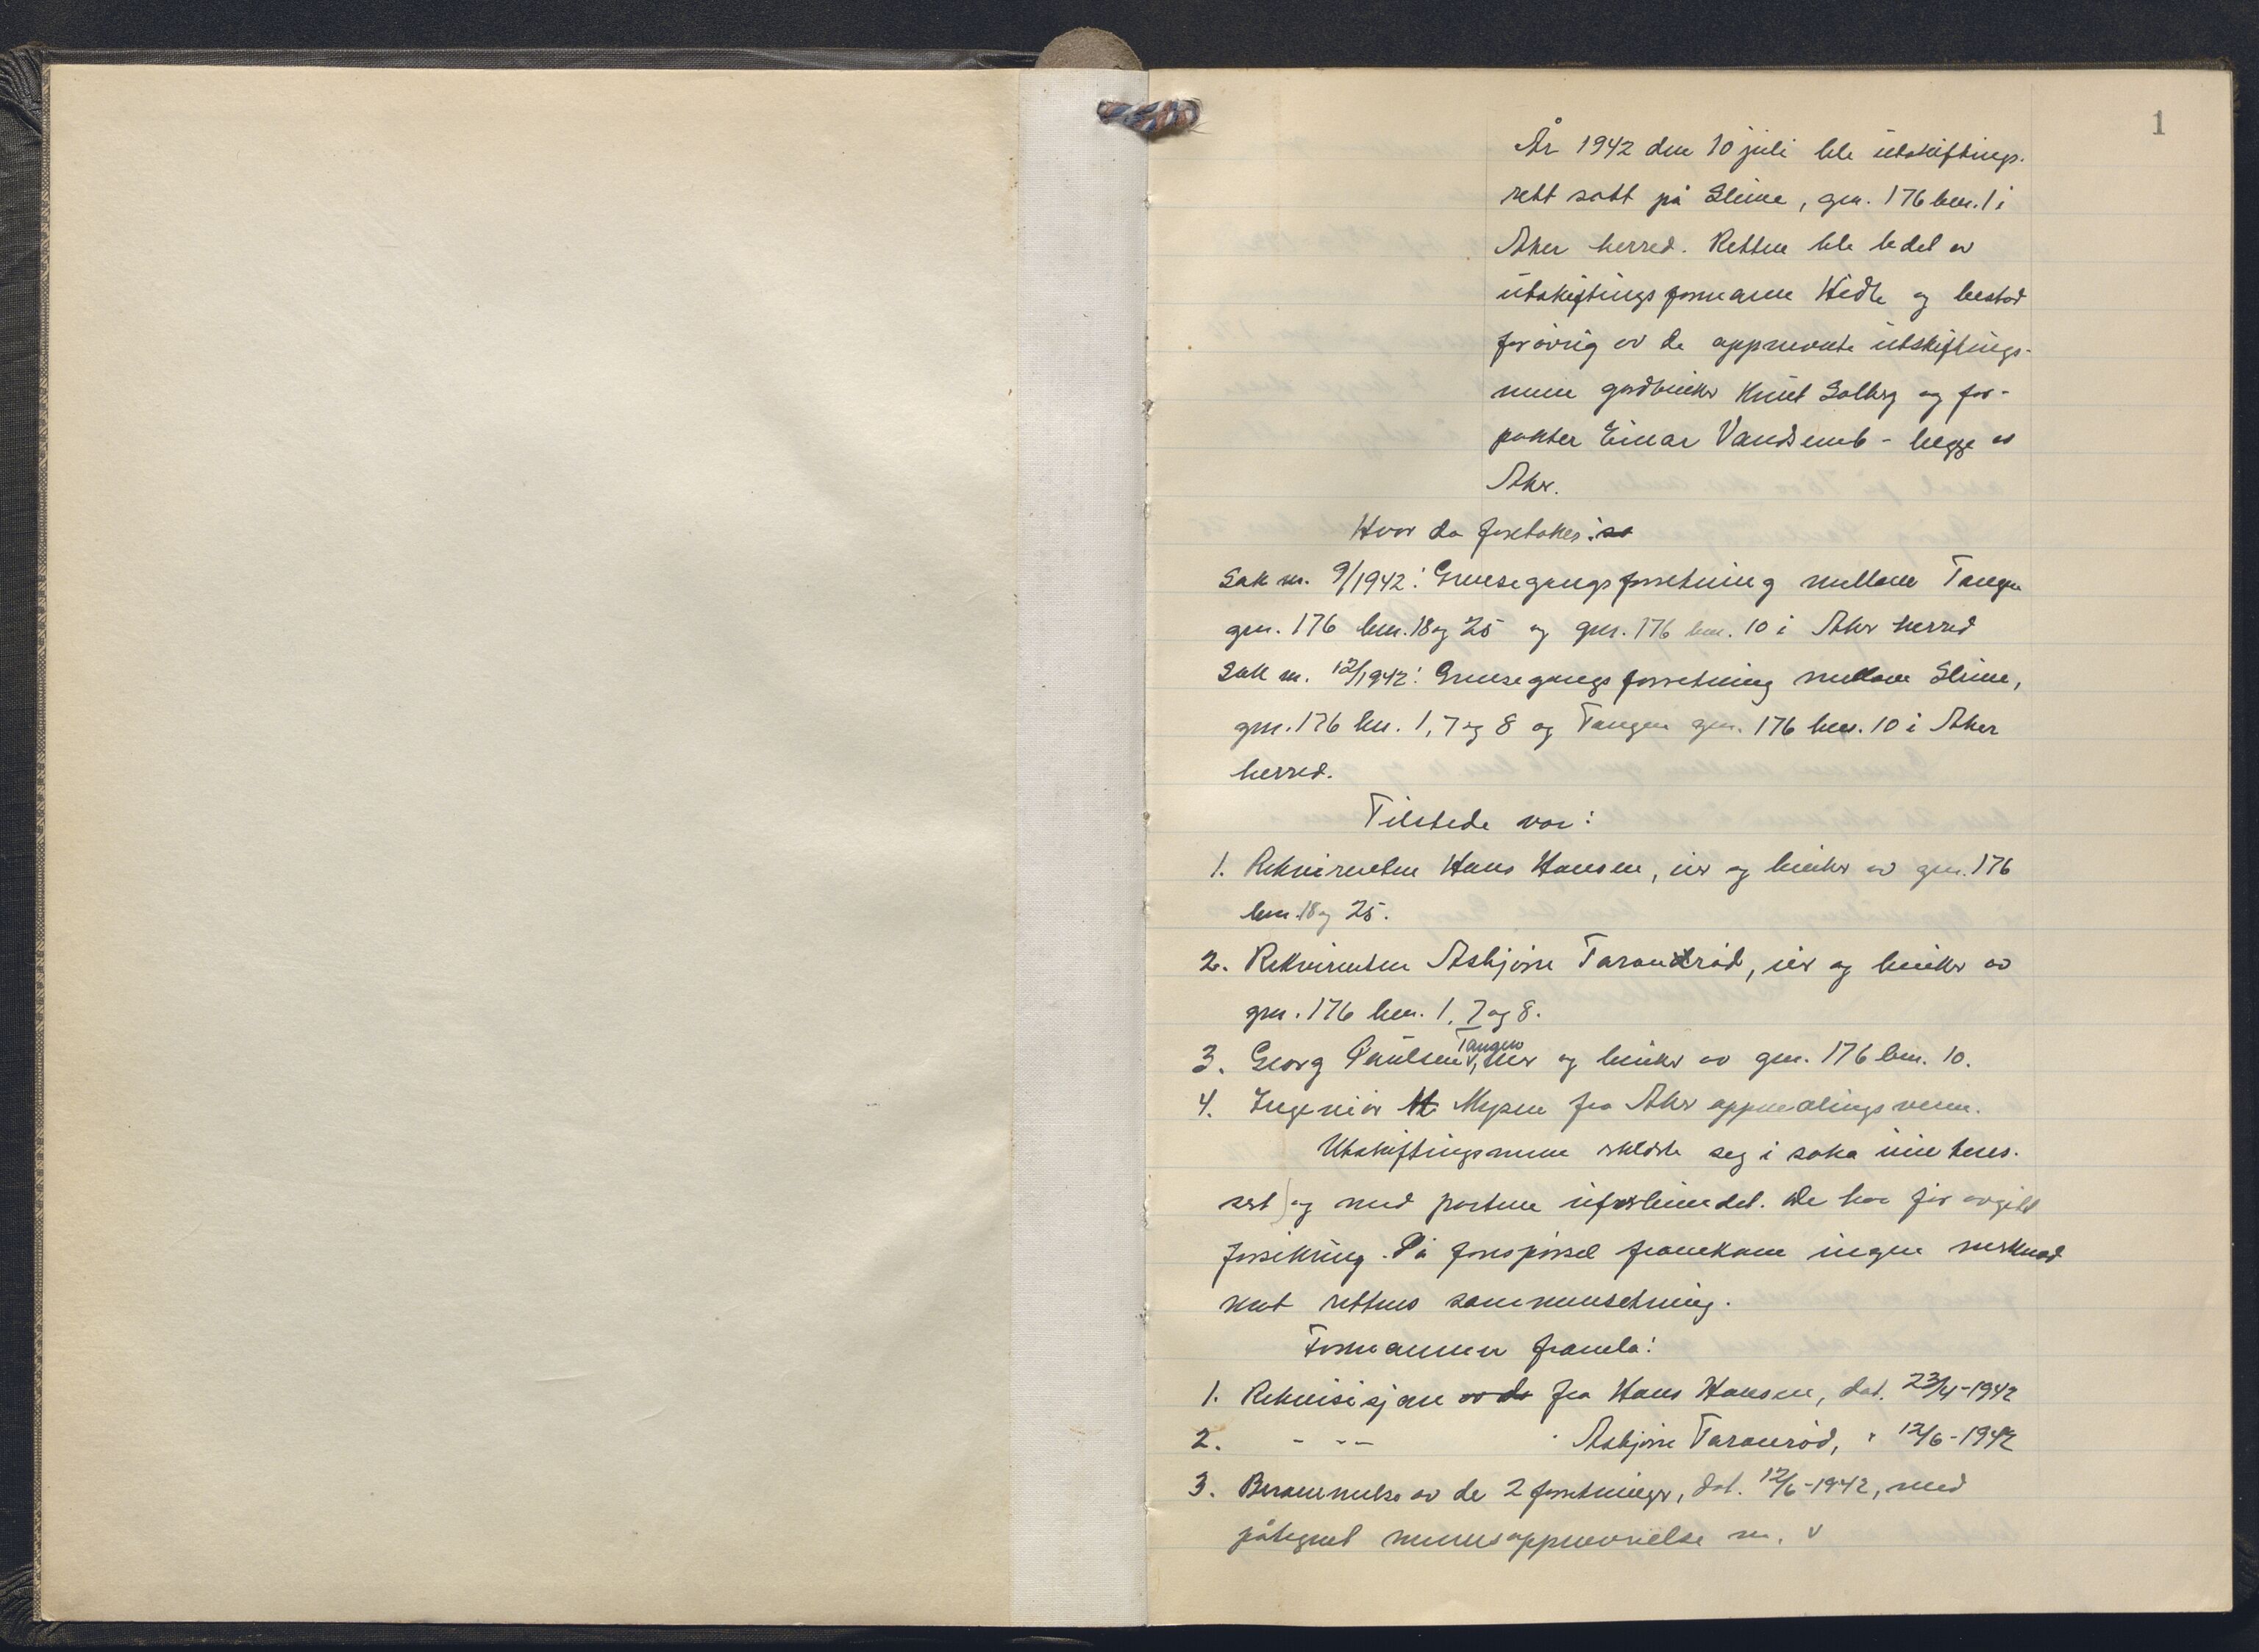 1
År 1942 den 10 juli ble utskiftings-
rett satt på Slime, gnr. 176 bnr. 1 i
Aker herred. Retten ble ledet av
utskiftingsformann Hidle og bestod
forøvrig av de oppnevnte utskiftings-
menn gardbruker Knut Solberg og for-
pakter Einar Vandsemb - begge av
Aker.
Hvor da foretokes:
Sak nr. 9/1942: Grensegangsforretning mellom Tangen
gnr. 176 bnr. 18 og 25 og gnr. 176 bnr. 10 i Aker herred
Sak nr. 12/1942: Grensegangsforretning mellom Slime,
gnr. 176 bnr. 1, 7 og 8 og Tangen gnr. 176 bnr. 10 i Aker
herred.
Tilstede var:
1. Rekvirenten Hans Hansen, eier og bruker av gnr. 176
bnr. 18 og 25.
2. Rekvirenten Asbjørn Taraldrød, eier og bruker av
gnr. 176 bnr. 1, 7 og 8.
3. Georg Paulsen Tangen, eier og bruker av gnr. 176 bnr. 10.
4. Ingeniør Mysen fra Aker oppmålingsvesen.
Utskiftingsmenn erklærte seg i saka uinteres-
sert og med partene uforbundet. De har før avgitt
forsikring. På forespørsel framkom ingen merknad
mot rettens sammensetning.
Formannen framla:
1. Rekvisisjon av de fra Hans Hansen, dat. 23/4-1942
2. - -- Asbjørn Taranrød, " 12/6-1942
3. Berammelse av de 2 forretninger, dat. 12/6-1942, med
påtegnet mennsoppnevnelse m. v